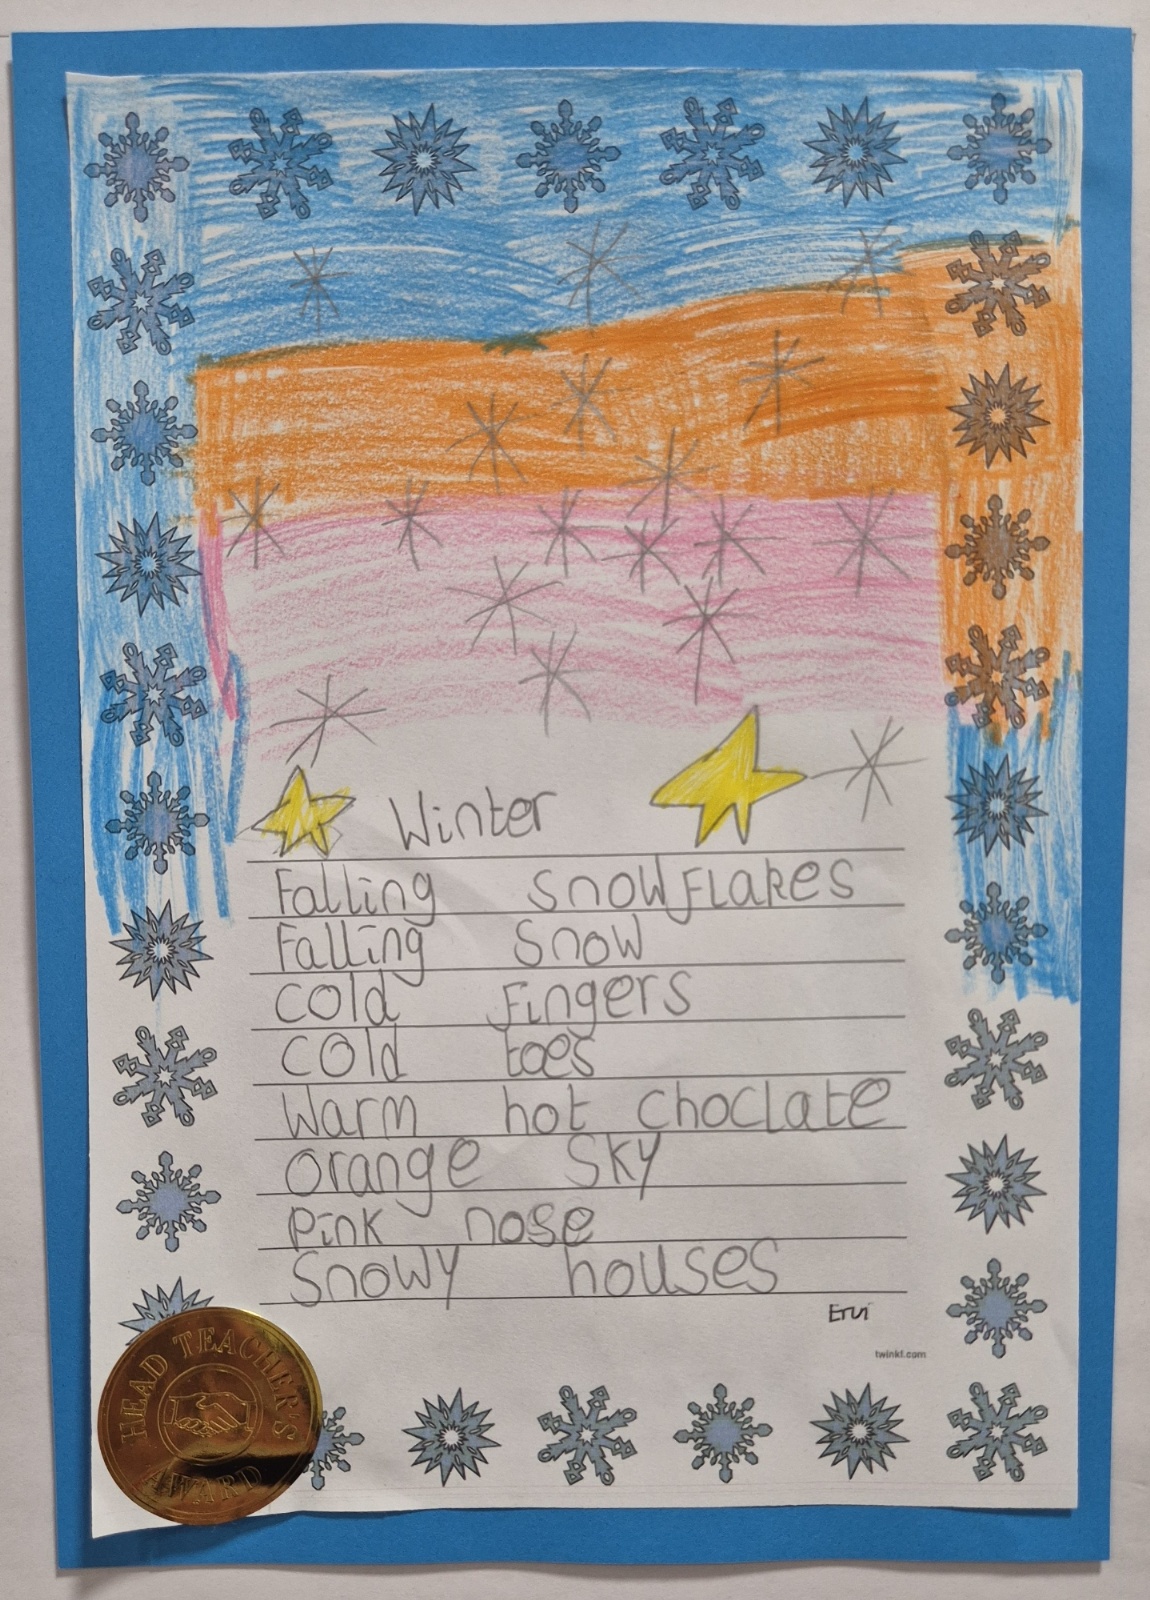 Winter
Falling snowflakes
Falling snow
cold fingers
cold toes
Warm hot choclate
orange sky
pink nose
snowy houses
twinkl.com
HEAD TEACHER'S
AWARD